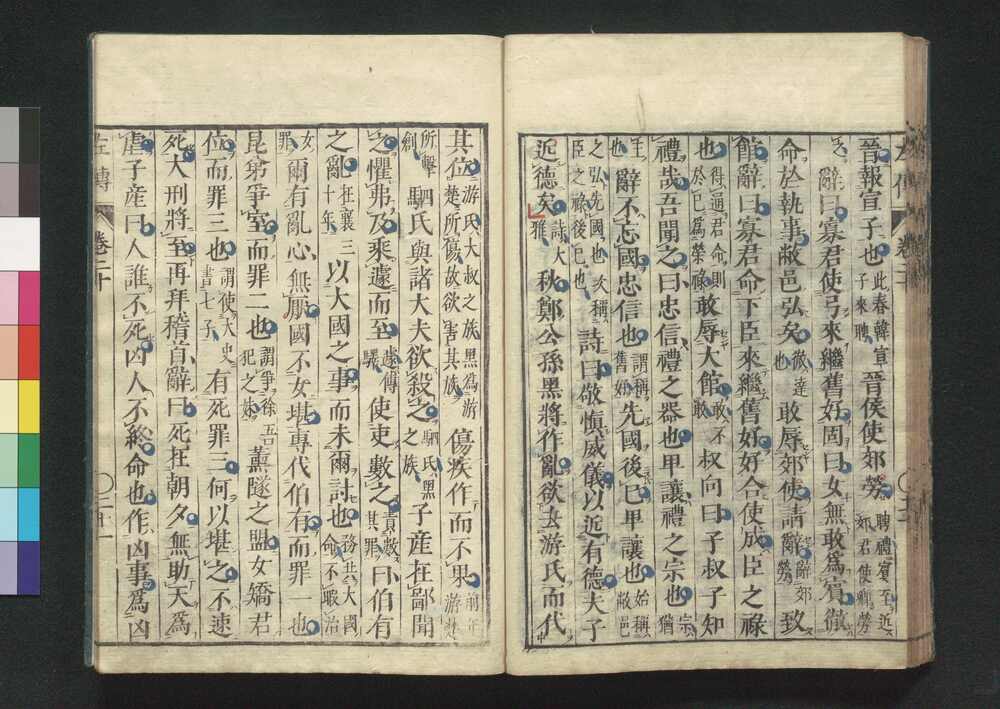 晉報宣子也此春韓宣子來聘晉侯使郊勞聘禮賓至近郊君使卿勞
之辭曰寡君使弓來繼舊好固曰女無敢為賓徹
命於執事敝邑弘矣徹達也敢辱郊使請辭辭郊勞致
館辭曰寡君命下臣來繼舊好好合使成臣之祿
也得通君命則於己為榮祿敢辱大館敢不敢叔向曰子叔子知
禮哉吾聞之曰忠信禮之器也卑讓禮之宗也宗猶
主也辭不忘國忠信也謂稱舊好先國後己卑讓也始稱敝邑
之弘先國也次稱臣之祿後己也詩曰敬慎威儀以近有德夫子
近德矣詩大雅秋鄭公孫黑將作亂欲去游氏而代
其位游氏大叔之族黑為游楚所傷故欲害其族傷疾作而不果前年游楚
所擊創駟氏與諸大夫欲殺之駟氏黑之族子產在鄙聞
之懼弗及乘遽而至遽傳驛使吏數之責數其罪曰伯有
之亂在襄三十年以大國之事而未爾討也務共大國命不暇治
女罪爾有亂心無厭國不女堪專伐伯有而罪一也
昆弟爭室而罪二也謂爭徐吾犯之妹薰隧之盟女矯君
位而罪三也謂使大史書七子有死罪三何以堪之不速
死大刑將至再拜稽首辭曰死在朝夕無助天為
虐子產曰人誰不死凶人不終命也作凶事為凶
左傳 卷二十